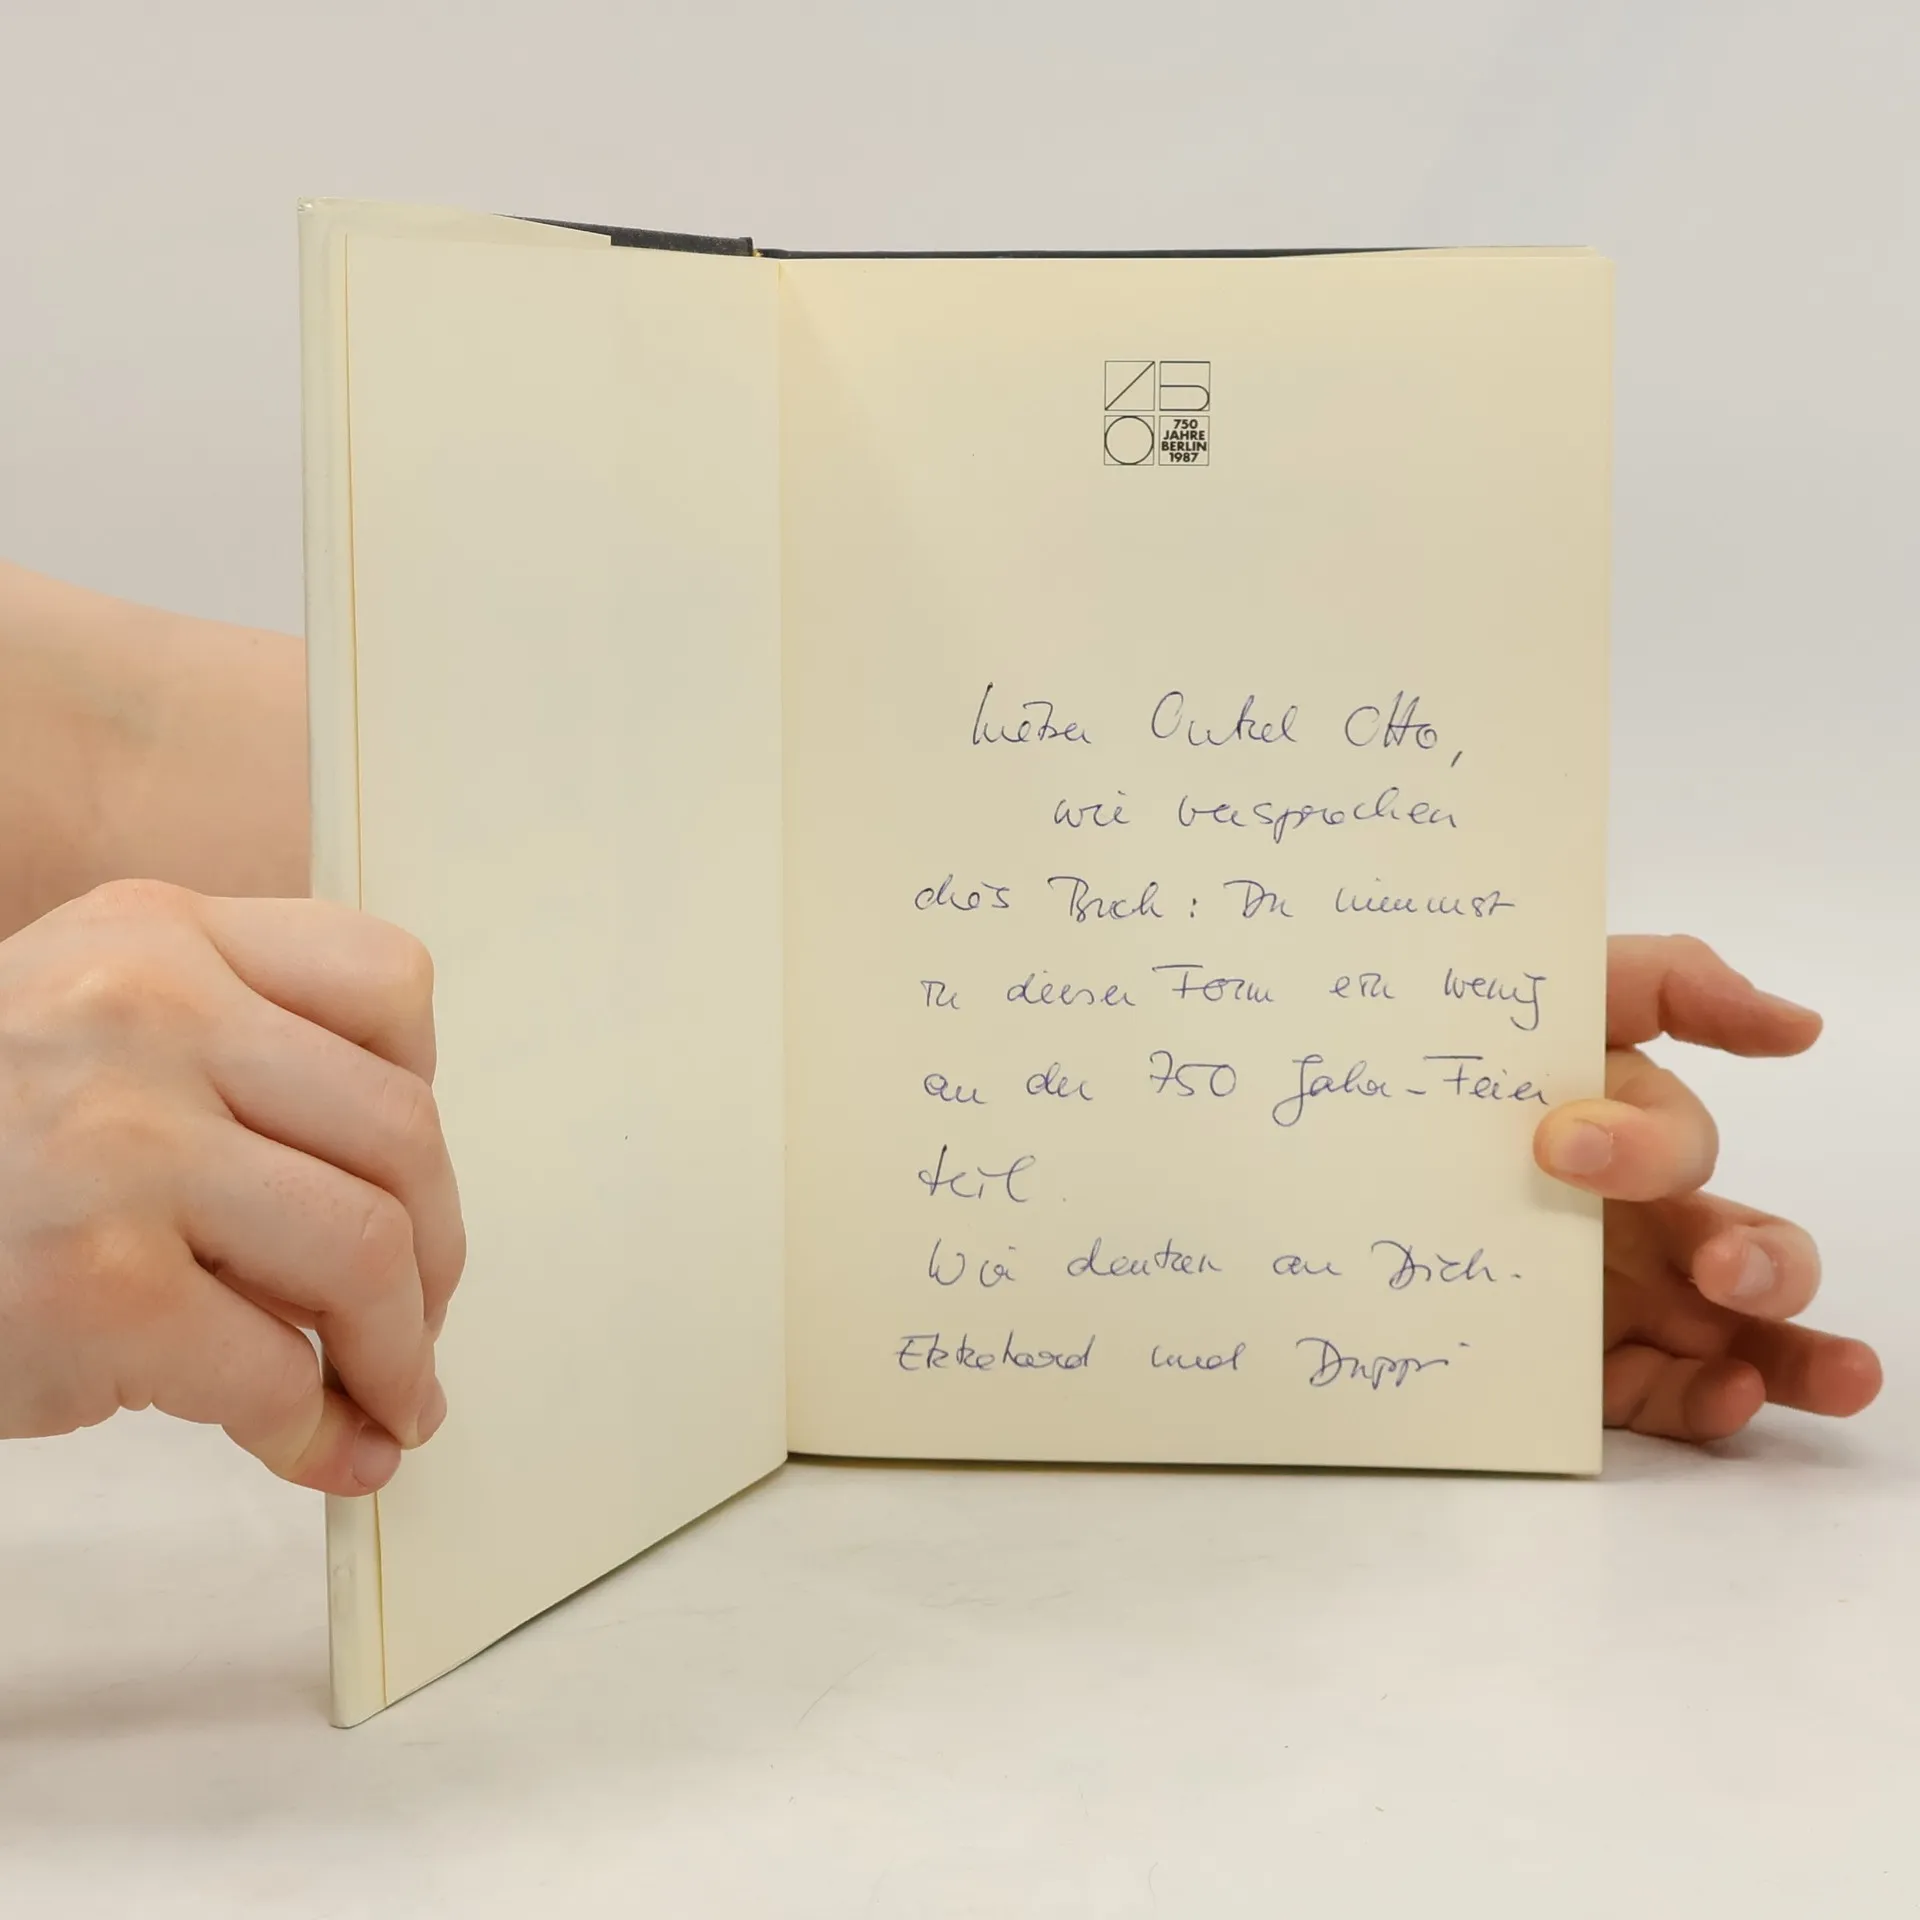 750
750
JAHRE
BERLIN
1987
Lieber Onkel Otto,
wie versprochen
dies Buch: Du nimmst
in dieser Form ein wenig
an der 750 Jahr-Feier
teil.
Wir denken an Dich.
Ekkehard und Duppi